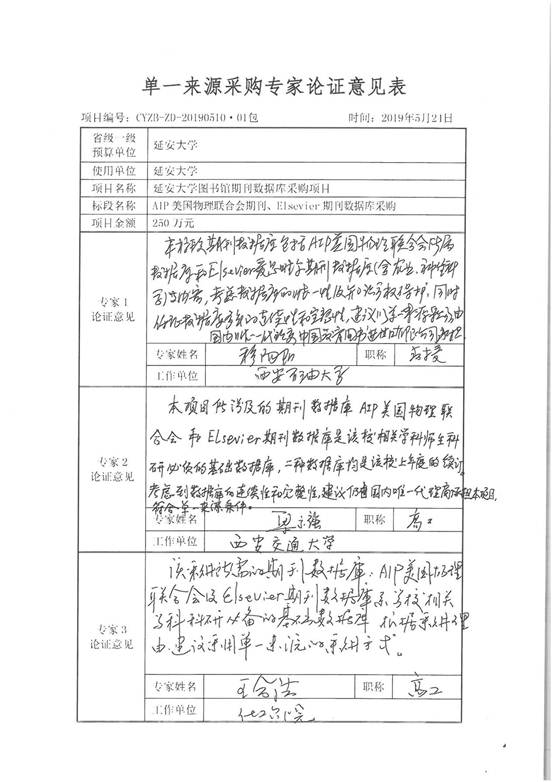 单一来源采购专家论证意见表
项目编号：CYZB-ZD-20190510·01包 时间：2019年5月21日
省级一级预算单位 延安大学
使用单位 延安大学
项目名称 延安大学图书馆期刊数据库采购项目
标段名称 AIP美国物理联合会期刊、Elsevier期刊数据库采购
项目金额 250万元
专家1论证意见
期刊数据库 AIP美国物理联合会所属
数据库和Elsevier 期刊数据库
数据库的唯一性 同时
保证数据库 的连续性和完整性，建议
国内唯一代理商中国 图书进出口 公司
专家姓名 职称 教授
工作单位 西安石油大学
专家2论证意见
本项目所涉及的期刊数据库AIP美国物理联
合会和Elsevier期刊数据库是该校相关学科师生科
研必备的基础数据库，二种数据库均是该校上年度的续订，
考虑到数据库的连续性和完整性，建议 国内唯一代理商承担本项目，
符合单一来源条件。
专家姓名 梁 强 职称 高工
工作单位 西安交通大学
专家3论证意见
该采购 期刊数据库：AIP美国物理
联合会及Elsevier期刊数据库系学校相关
学科科研必备的基 数据库 根据采购理
由，建议采用单一来源的采购方式。
专家姓名 王 职称 高工
工作单位